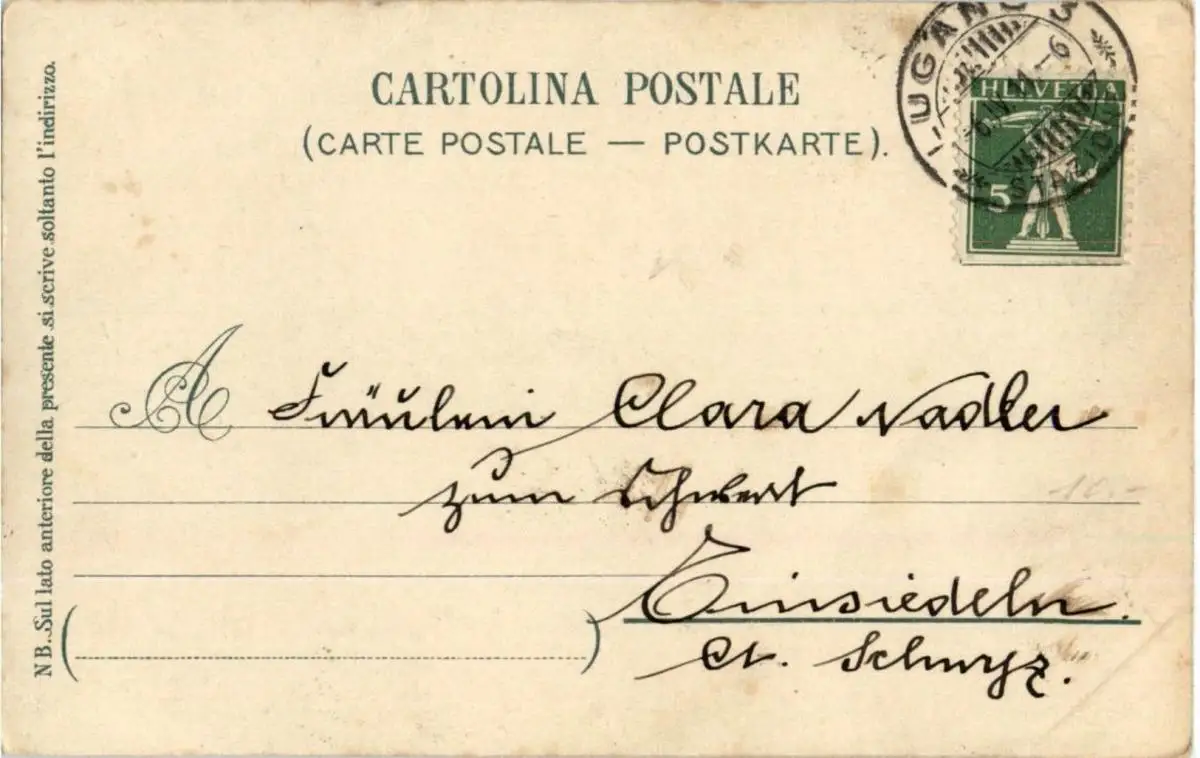 CARTOLINA POSTALE
(CARTE POSTALE — POSTKARTE).
LUGANO 3
HELVETIA
5
A Fräulein Clara Nadler
zum Schwert
Einsiedeln.
Ct. Schwyz.
NB. Sul lato anteriore della presente si scrive soltanto l'indirizzo.